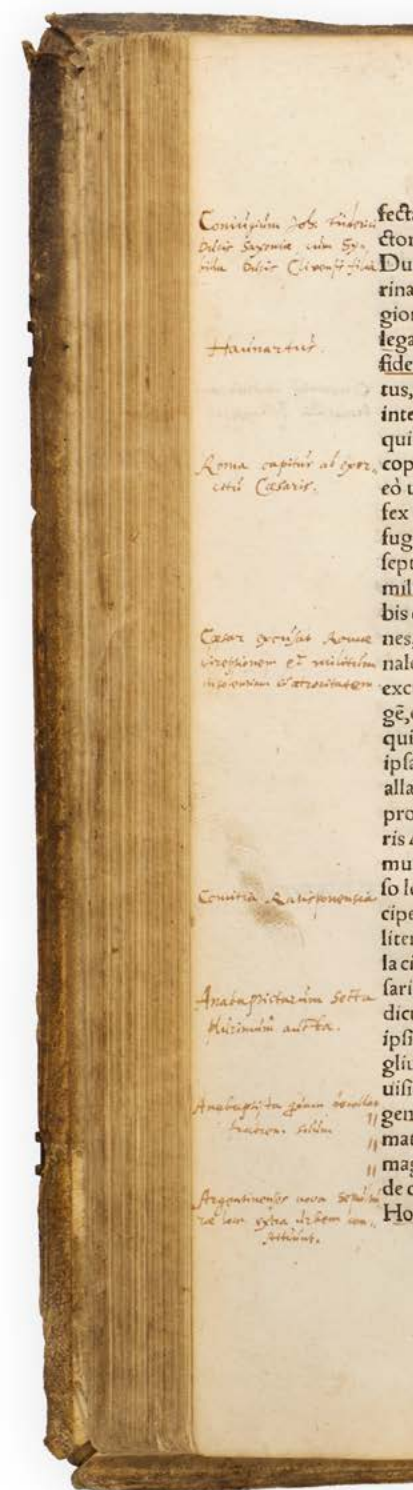 Coniugium Joh. Friderici
Ducis Saxoniæ cum Sy-
billa Ducis Clivensis filia
Haunartus.
Roma capitur ab exer-
citu Cæsaris.
Cæsar excusat Romæ
direptionem et militum
insolentiam & atrocitatem
Comitia Ratisponensia
Anabaptistarum Secta
plurimum aucta.
Anabaptista
fratrem
Argentinenses nova
loca extra Urbem con-
stituunt.
fecta
ctor
Du
rina
gion
lega
fide
tus,
inte
qui
cop
eò u
sex
fug
sept
mil
bis
nes,
nale
exc
gē,
qui
ipsa
alla
pro
ris
mu
so le
cipe
liter
la ci
sari
dict
ipsi
gliu
uisi
gen
mat
mag
de c
Ho